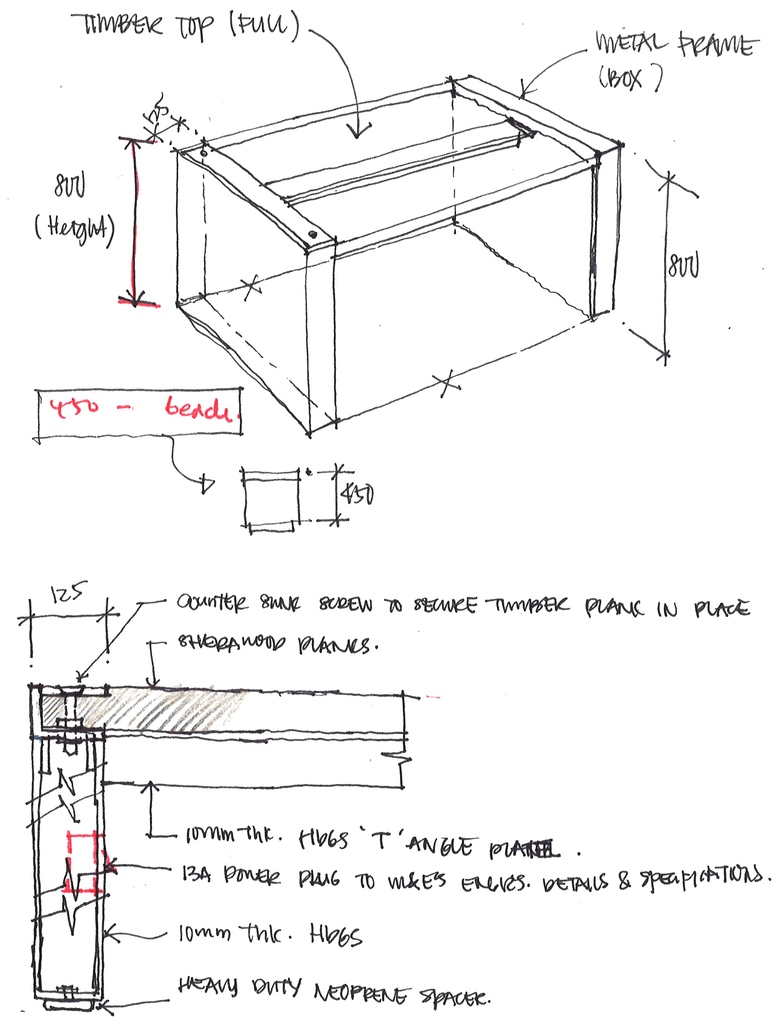 TIMBER TOP (FULL)
METAL FRAME
(BOX)
125
800
(Height)
800
450 - bench.
450
125
COUNTER SUNK SCREW TO SECURE TIMBER PLANK IN PLACE
PLANKS.
10mm THK. HDGS 'T' ANGLE PLATE.
13A POWER PLUG TO M&E'S ENGRS. DETAILS & SPECIFICATIONS.
10mm THK. HDGS
HEAVY DUTY NEOPRENE SPACER.